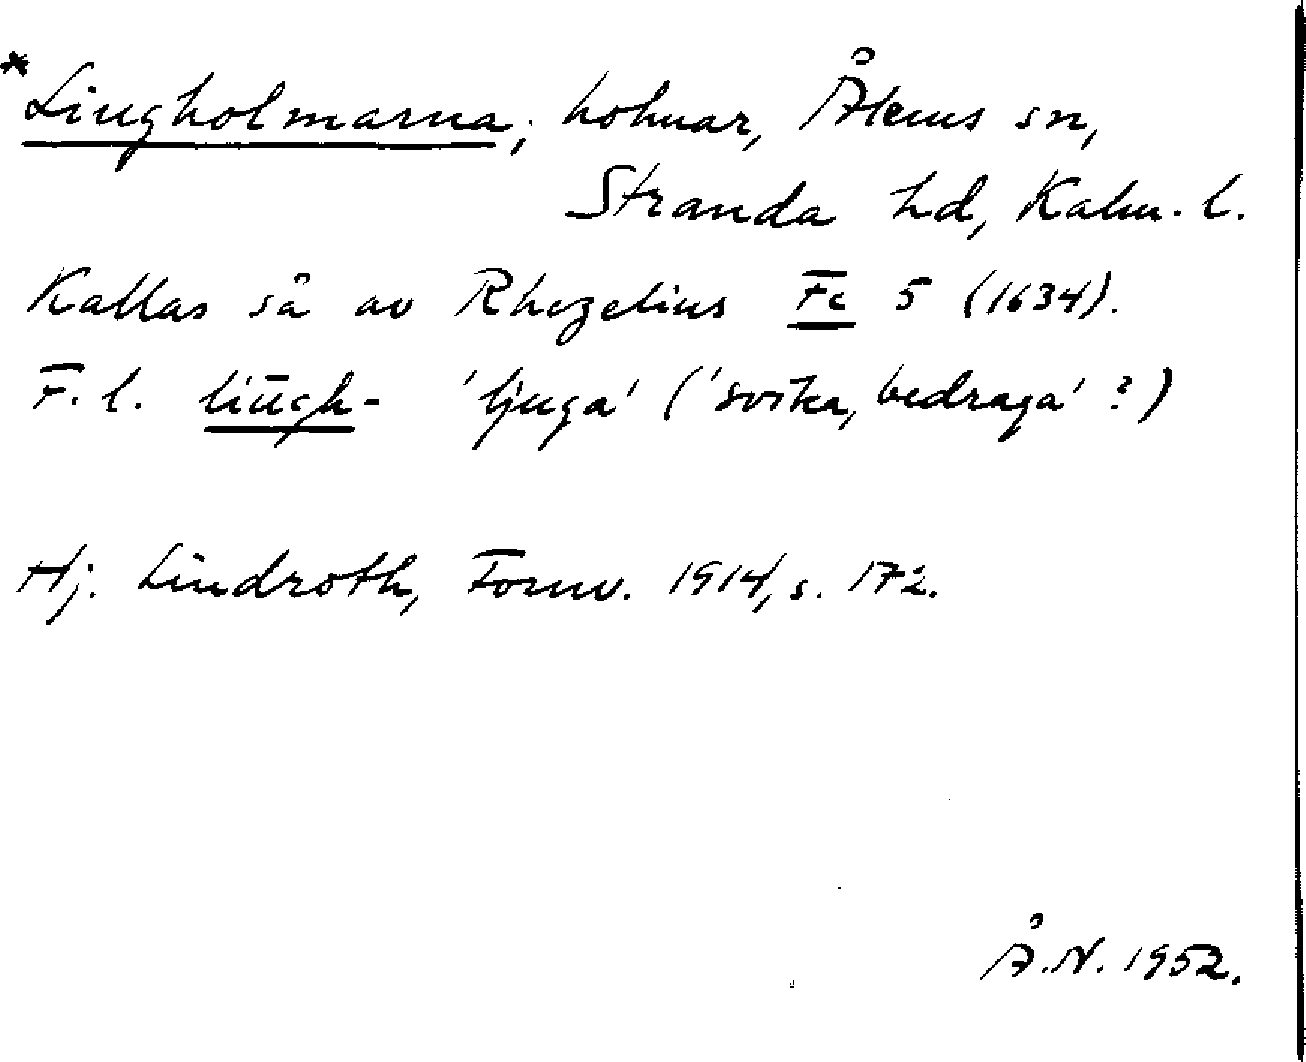 *Liugholmarna; holmar, Ålems sn,
Stranda hd, Kalm. l.
Kallas så av Rhezelius Fc 5 (1634).
F. l. liūgh- 'ljuga' ('svika, bedraga' ?)
Hj. Lindroth, Fornv. 1914, s. 172.
Å.N. 1952.